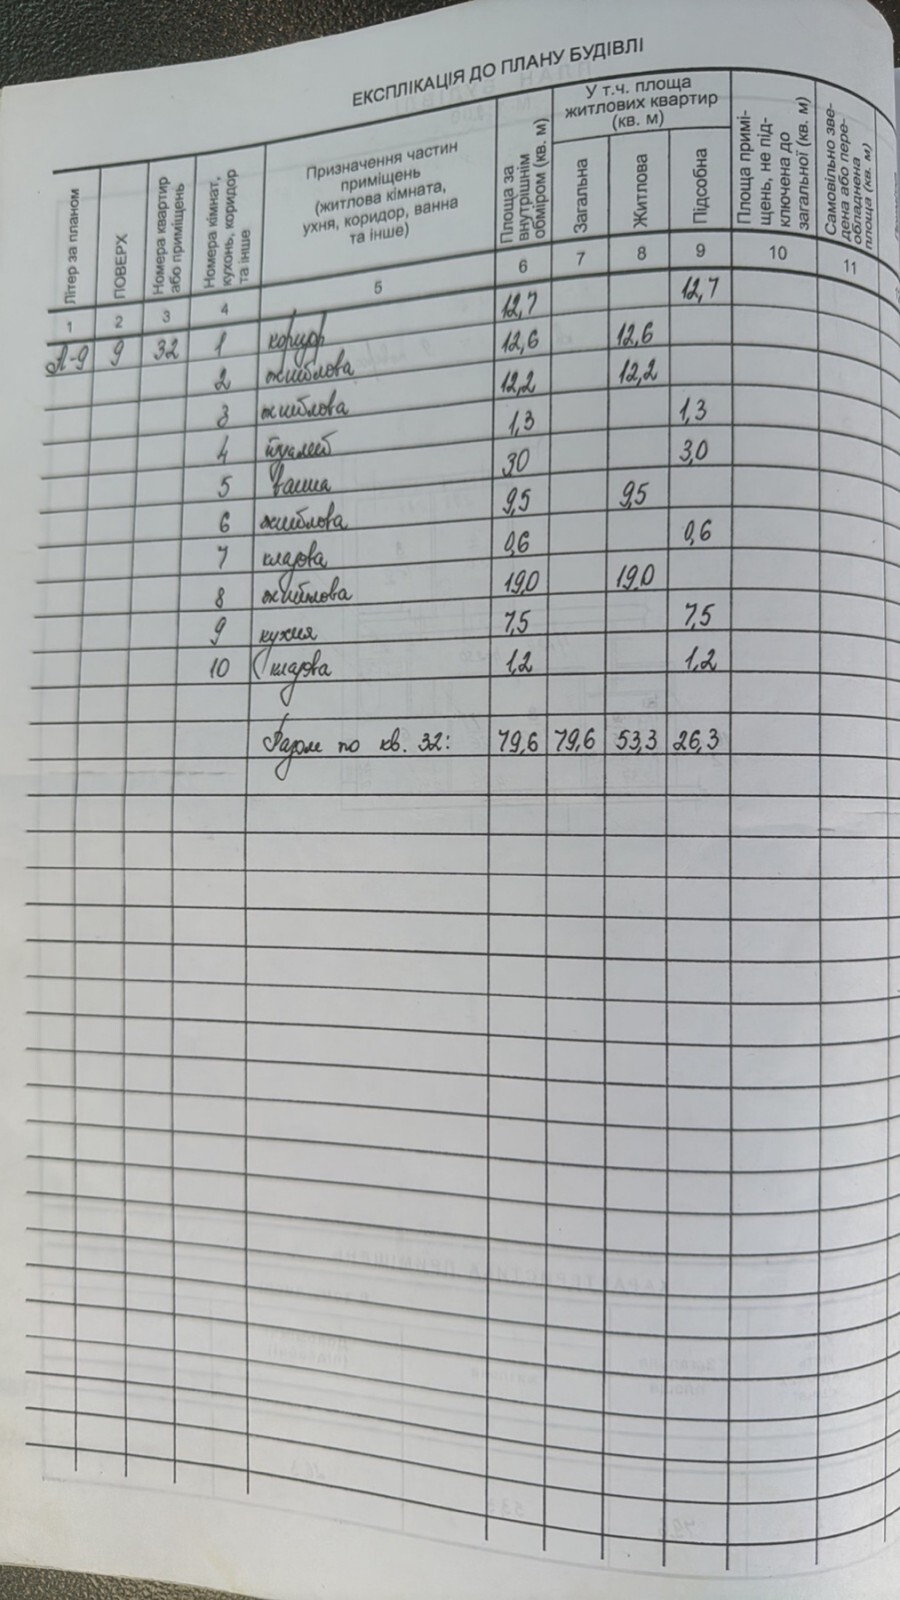 ЕКСПЛІКАЦІЯ ДО ПЛАНУ БУДІВЛІ
Літер за планом
ПОВЕРХ
Номера квартир або приміщень
Номера кімнат, кухонь, коридор та інше
Призначення частин приміщень (житлова кімната, ухня, коридор, ванна та інше)
Площа за внутрішнім обміром (кв. м)
У т.ч. площа житлових квартир (кв. м)
Загальна
Житлова
Підсобна
Площа примі-щень, не під-ключена до загальної (кв. м)
Самовільно зве-дена або пере-обладнена площа (кв. м)
1 2 3 4 5 6 7 8 9 10 11
А-9 9 32 1 коридор 12,7 12,7
2 житлова 12,6 12,6
3 житлова 12,2 12,2
4 туалет 1,3 1,3
5 ванна 30 3,0
6 житлова 9,5 9,5
7 кладова 0,6 0,6
8 житлова 19,0 19,0
9 кухня 7,5 7,5
10 кладова 1,2 1,2
Разом по кв. 32: 79,6 79,6 53,3 26,3